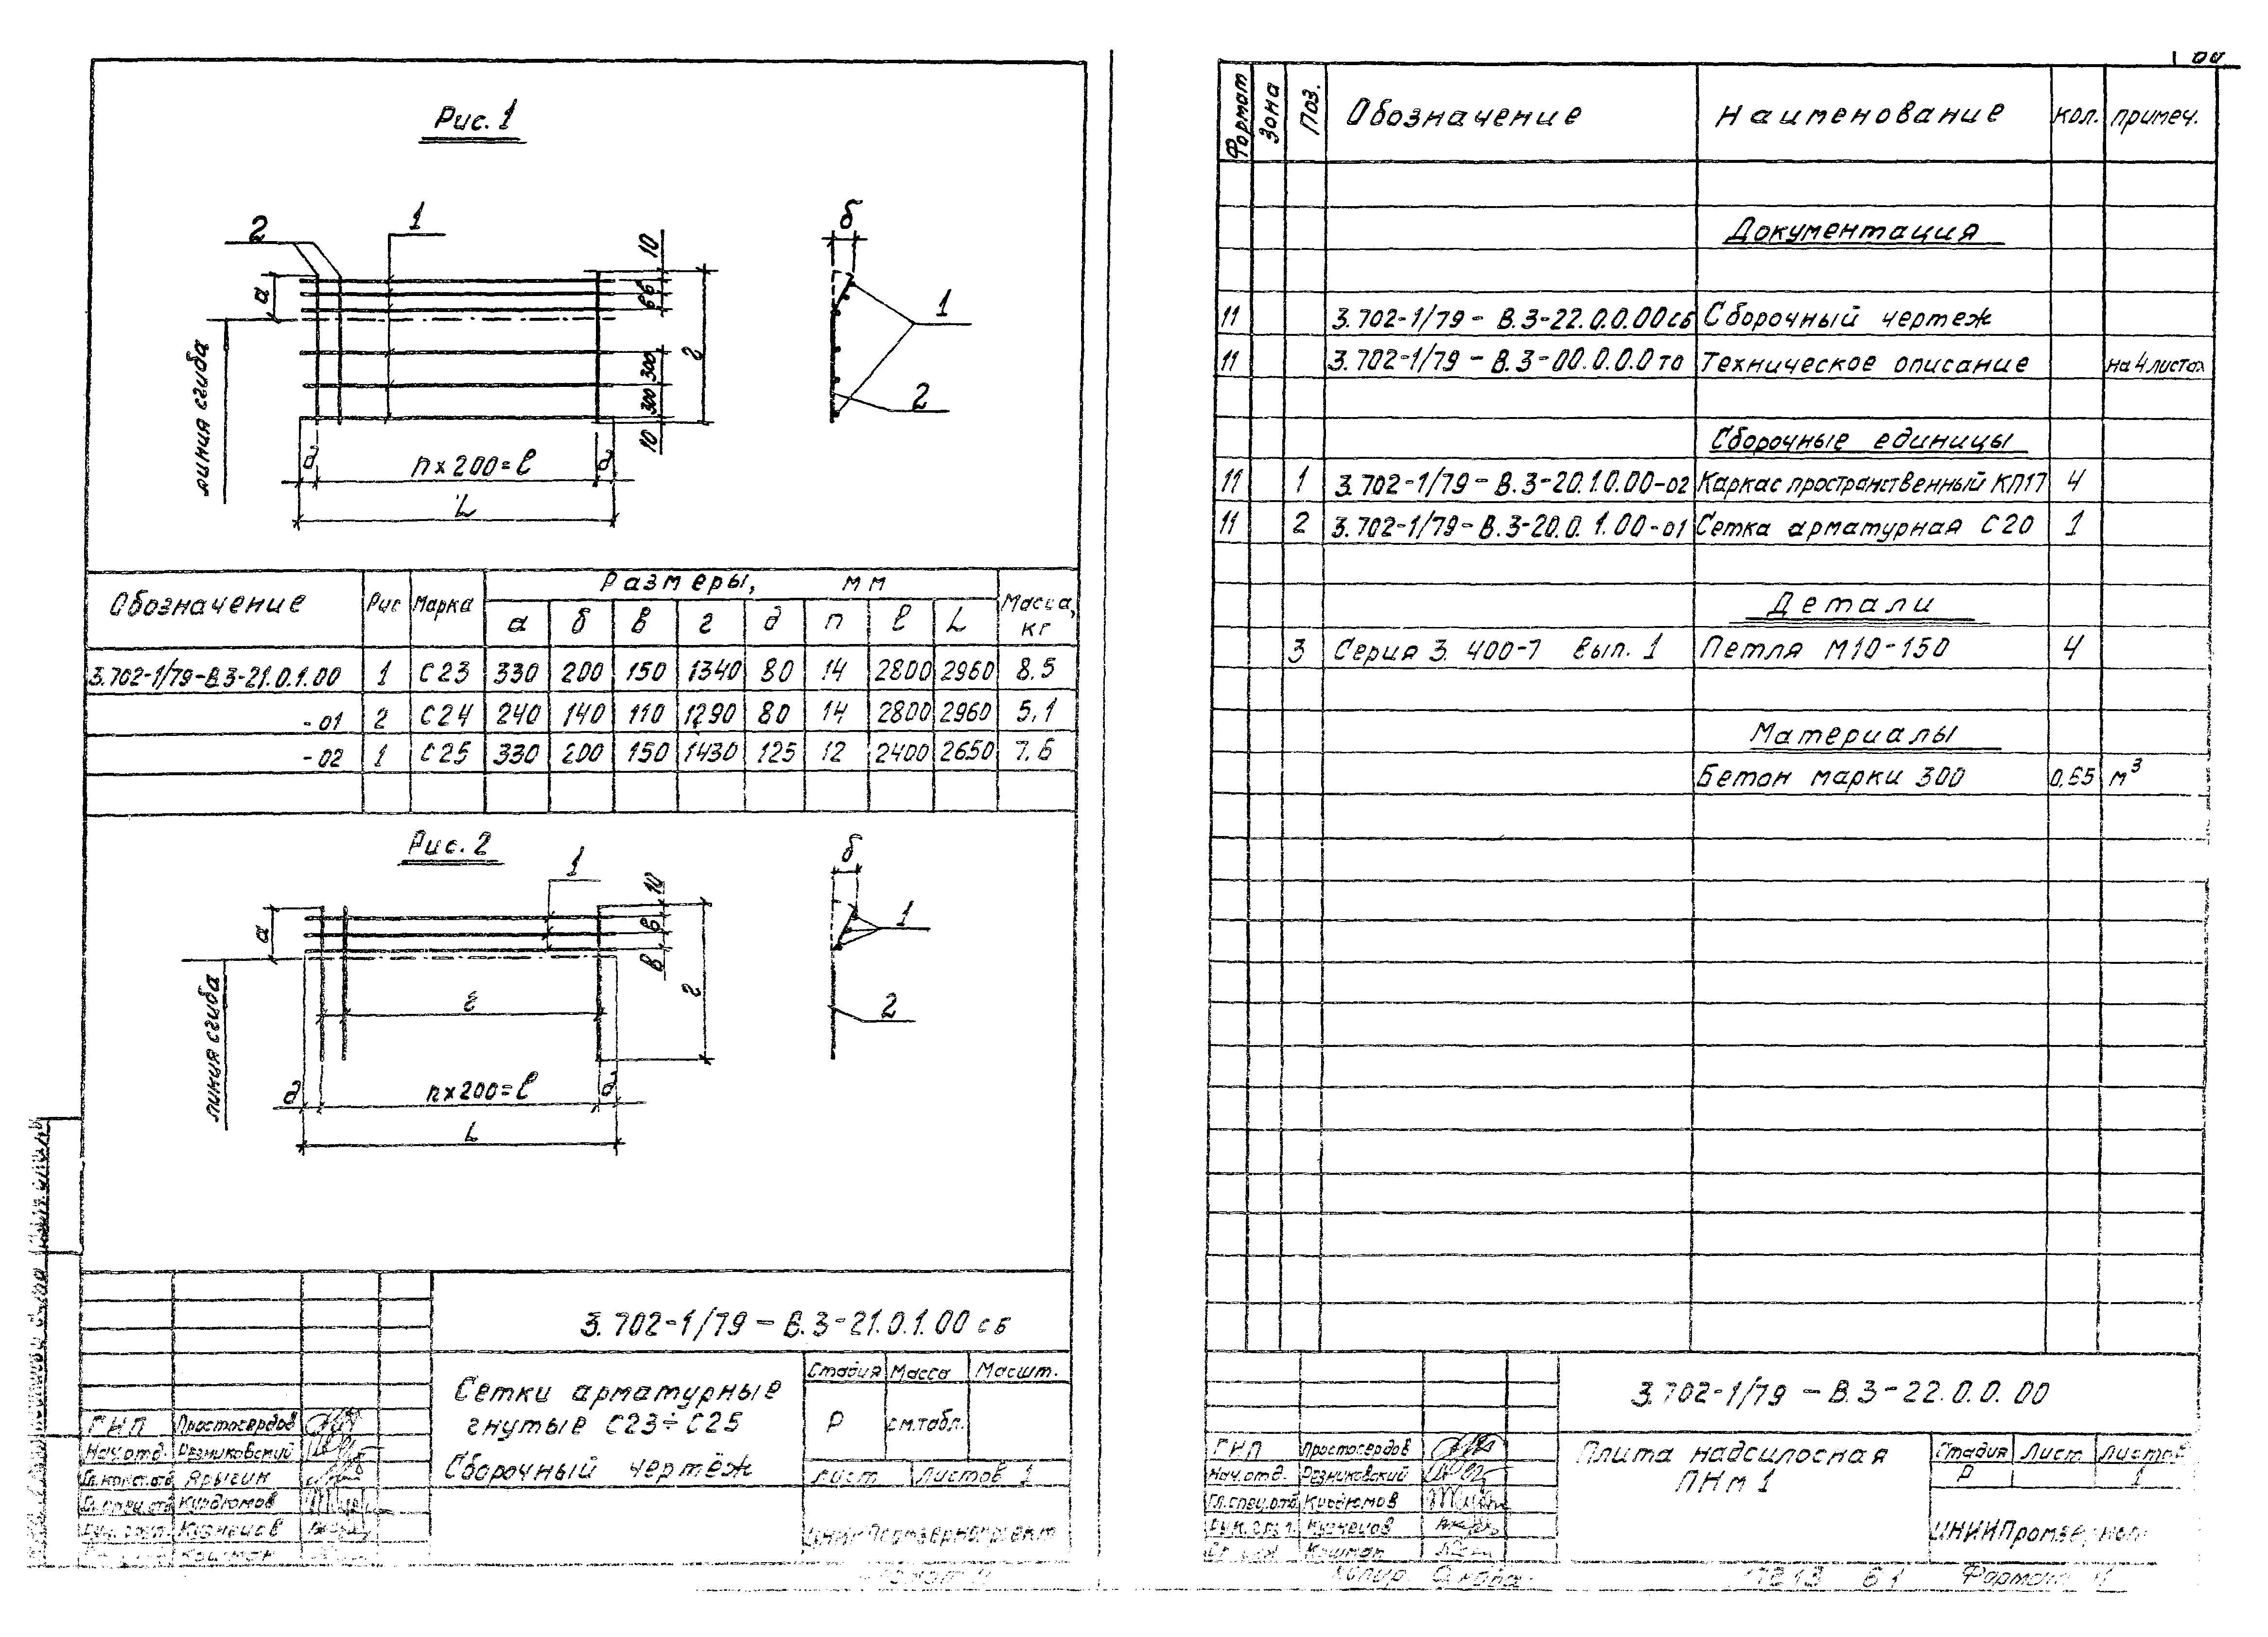 Рис. 1
2 1 б
10
а вв 1
линия сгиба
300 г
300 2
10
д n×200=l д
L
Обозначение Рис Марка Размеры, мм Масса, кг
а б в г д n l L
3.702-1/79-В.3-21.0.1.00 1 С23 330 200 150 1340 80 14 2800 2960 8.5
-01 2 С24 240 140 110 1290 80 14 2800 2960 5,1
-02 1 С25 330 200 150 1430 125 12 2400 2650
Рис. 2
1 б
10
а в 1
в
линия сгиба г 2
д n×200=l д
L
3.702-1/79-В.3-21.0.1.00 сб
Сетки арматурные
гнутые С23÷С25
Сборочный чертёж
Стадия Масса Масшт.
Р см.табл.
Лист Листов 1
ГИП Простосердов
Нач.отд. Резниковский
Гл.конст.отд Ярыгин
Гл.спец.отд Курдюмов
Кузнецов
Кошман
Формат Зона Поз. Обозначение Наименование кол. примеч.
Документация
11 3.702-1/79-В.3-22.0.0.00сб Сборочный чертеж
11 3.702-1/79-В.3-00.0.0.0то Техническое описание на 4 листах
Сборочные единицы
11 1 3.702-1/79-В.3-20.1.0.00-02 Каркас пространственный КП17 4
11 2 3.702-1/79-В.3-20.0.1.00-01 Сетка арматурная С20 1
Детали
3 Серия 3.400-7 вып. 1 Петля М10-150 4
Материалы
Бетон марки 300 м³
3.702-1/79-В.3-22.0.0.00
Плита надсилосная
ПНм1
Стадия Лист Листов
Р 1
ГИП Простосердов
Нач.отд. Резниковский
Гл.спец.отд Курдюмов
Кузнецов
Кошман
Копир
Формат 11